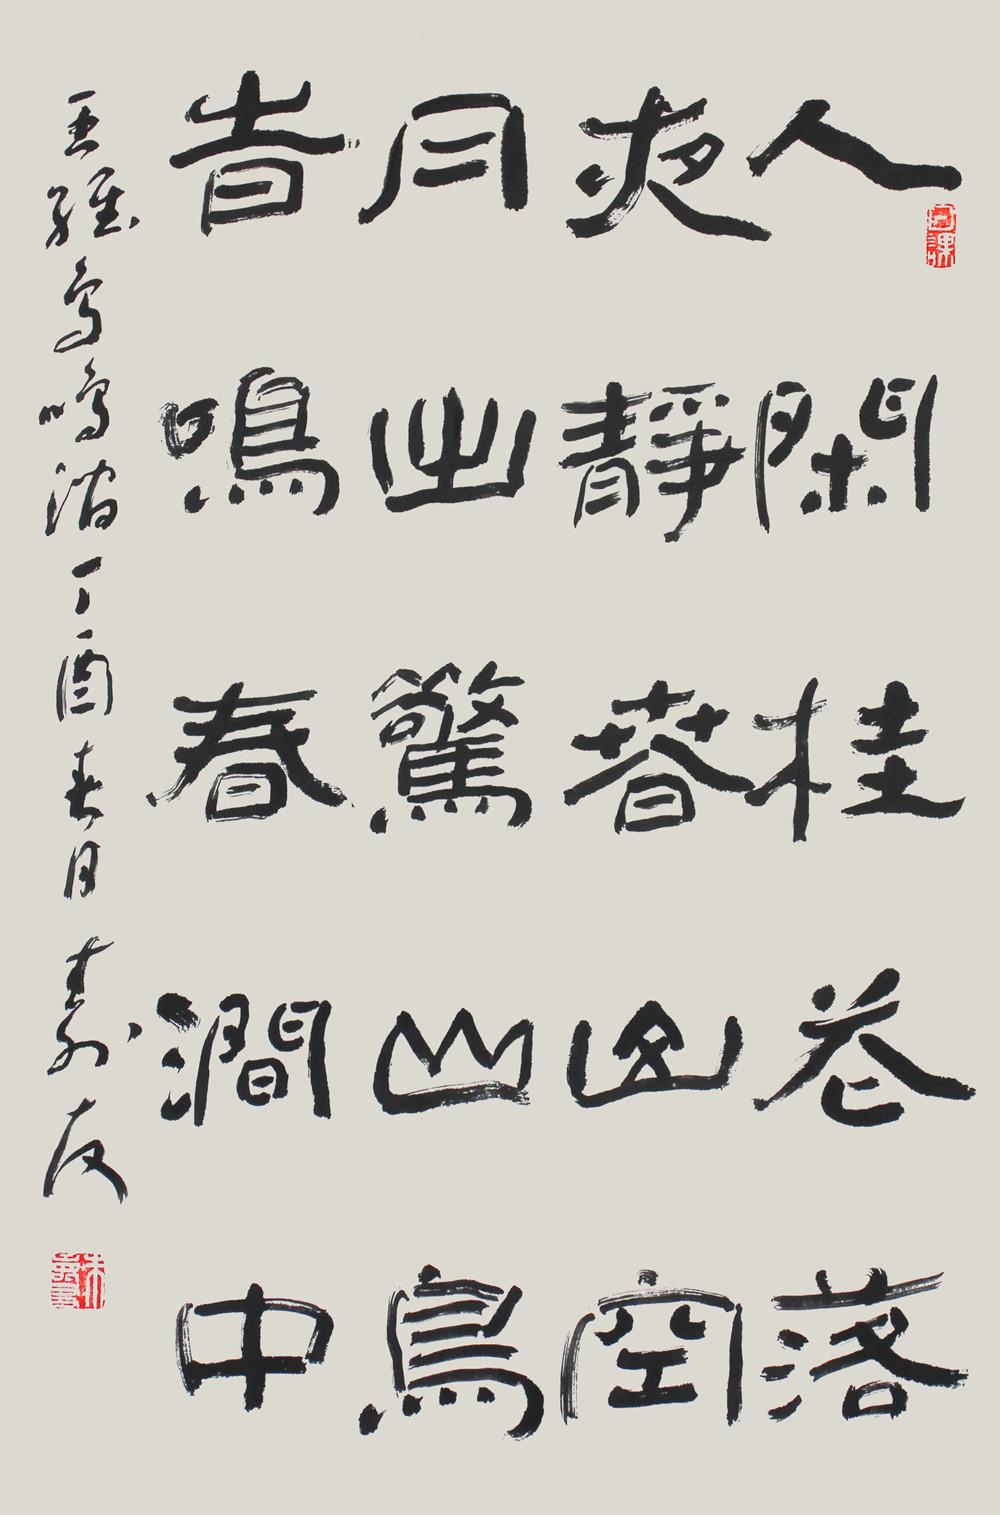 人閑桂花落
夜靜春山空
月出驚山鳥
旹鳴春澗中
王維鳥鳴澗丁酉春月壽友
朱壽友